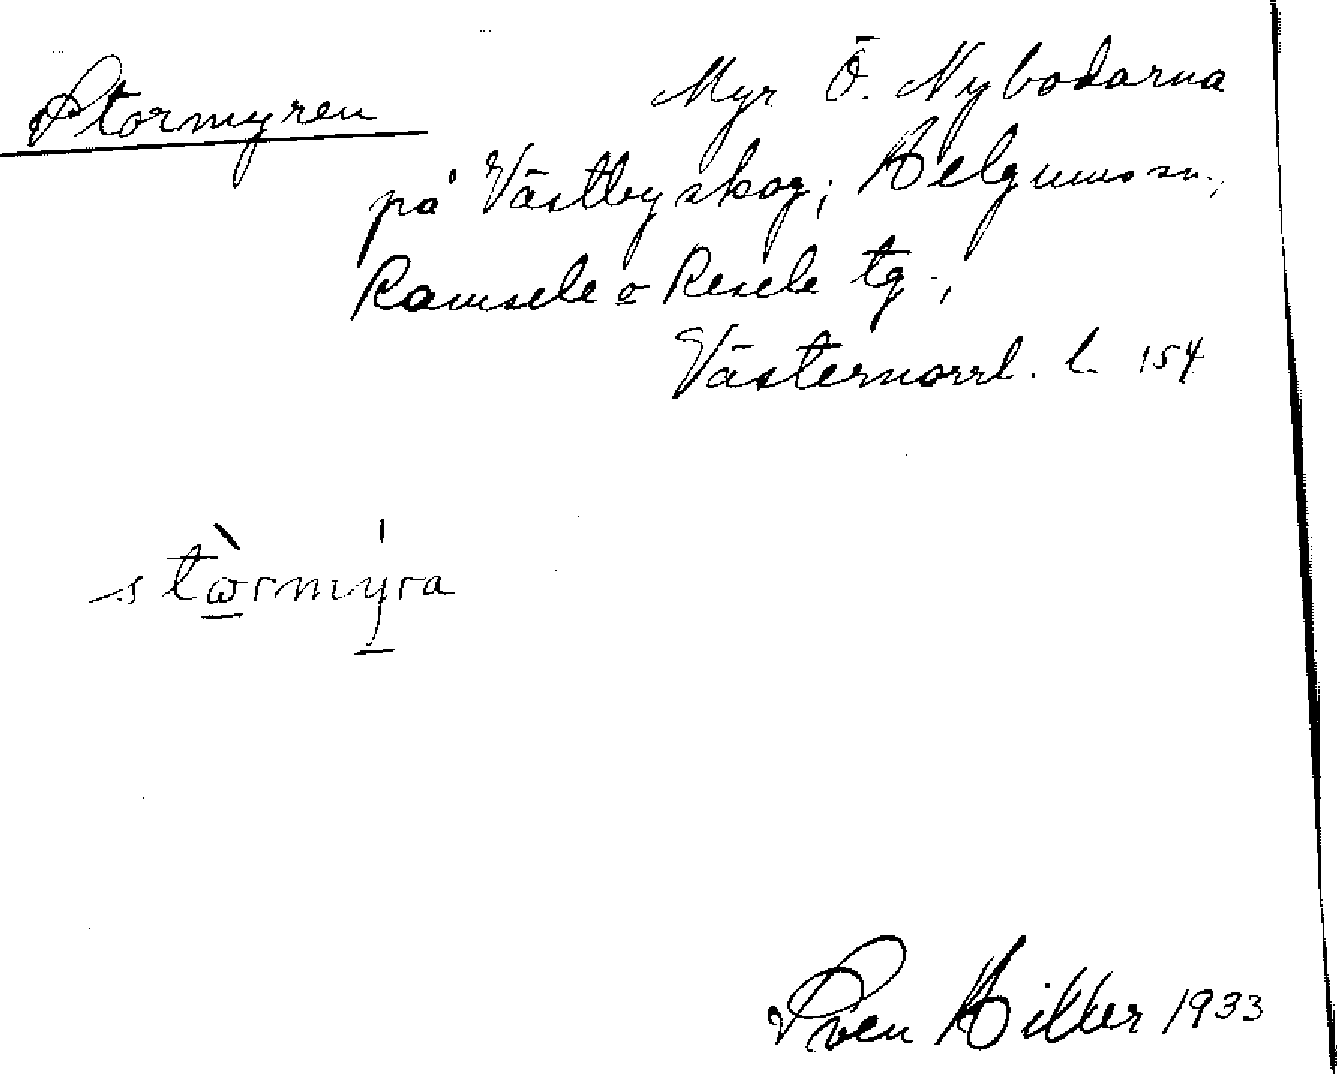 Stormyren
Myr Ö. Nybodarna
på Västbyskog; Helgums sn.,
Ramsele o Resele tg.,
Västernorrl. l. 154
stɷ̀rmýra
Sven Hiller 1933